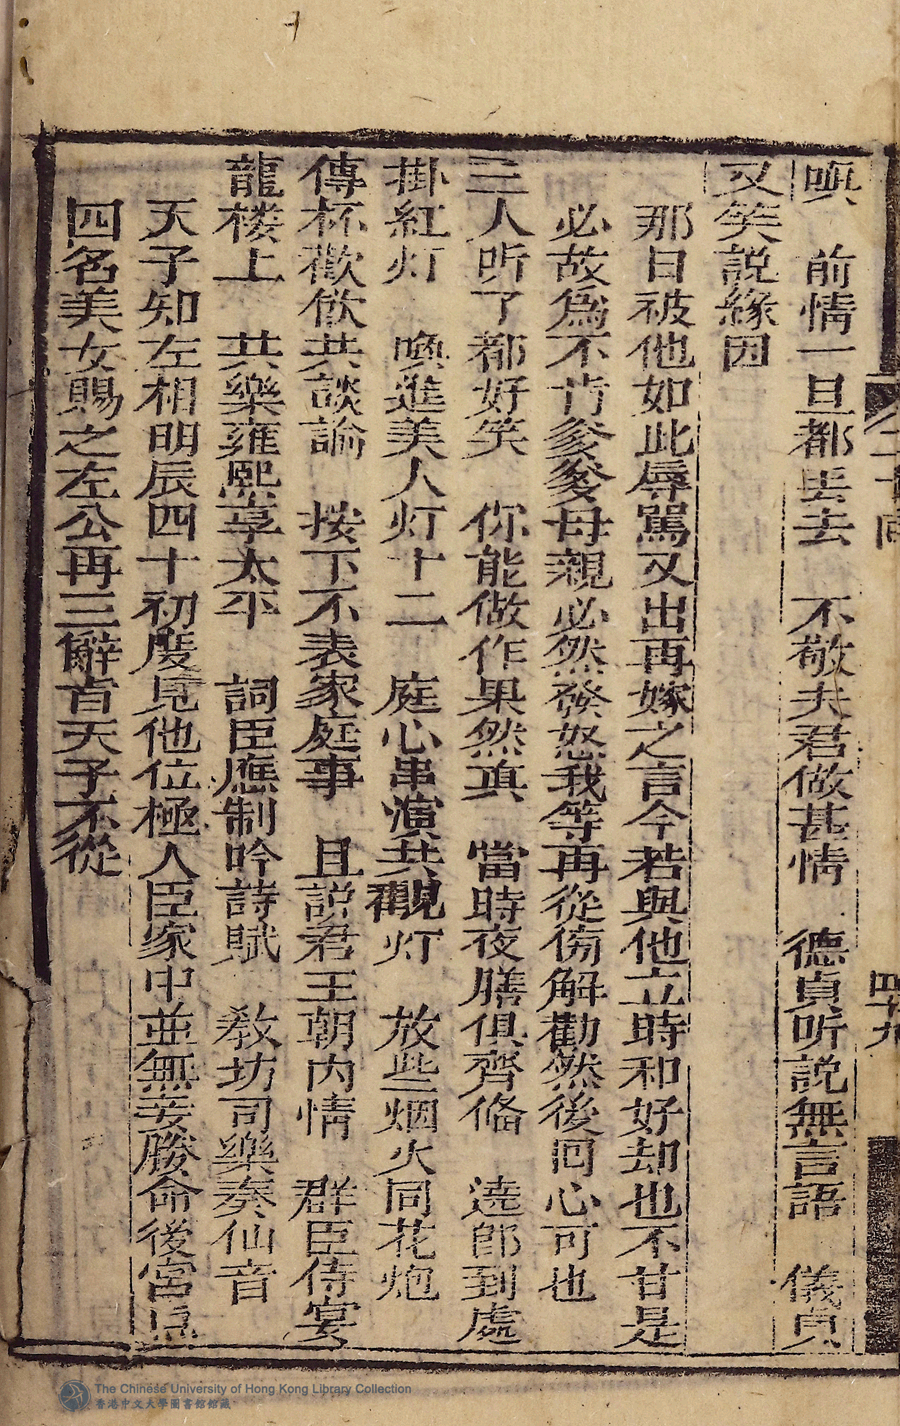 嗔　前情一旦都丢去　不敬夫君做甚情　德貞听説無言語　儀貞
又笑説緣因
那日被他如此辱駡又出再嫁之言今若與他立時和好却也不甘是
必故爲不肯爹爹母親必然發怒我等再從傍解勸然後囘心可也
三人听了都好笑　你能做作果然真　當時夜膳俱齊俻　遶郎到處
掛紅灯　喚進美人灯十二　庭心串演共觀灯　放些烟火同花炮
傳杯歡飲共談論　按下不表家庭事　且説君王朝内情　群臣侍宴
龍楼上　共樂雍熙享太平　詞臣應制吟詩賦　教坊司樂奏仙音
天子知左相明辰四十初度見他位極人臣家中並無妾媵命後宮
四名美女賜之左公再三辭肯天子不從
二十回
四十九
The Chinese University of Hong Kong Library Collection
香港中文大學圖書館館藏